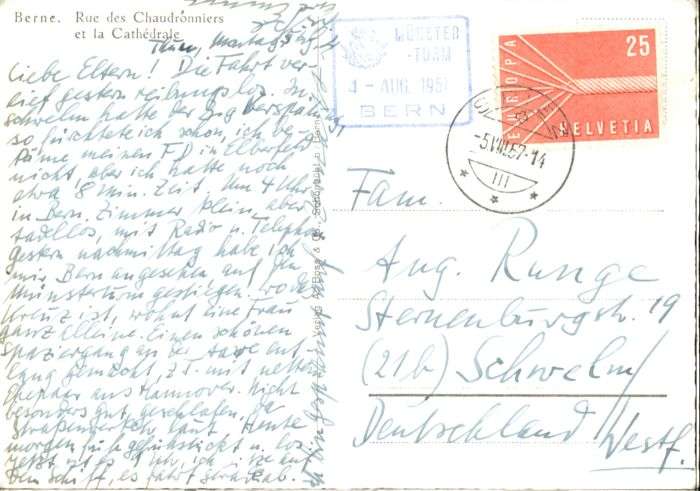 Berne. Rue des Chaudronniers
et la Cathédrale
Thun, Montag
Liebe Eltern! Die Fahrt ver-
lief gestern reibungslos. In
Schwelm hatte der Zug Verspätung,
so fürchtete ich schon, ich be-
käme meinen FD in Elberfeld
nicht, aber ich hatte noch
etwa 8 Min. Zeit. Um 4 Uhr
in Bern. Zimmer klein, aber
tadellos, mit Radio u. Telephon
gestern nachmittag habe ich
mir Bern angesehen, auf den
Münsterturm gestiegen. Wo das
Kreuz ist, wohnt eine Frau
ganz alleine. Einen schönen
Spaziergang an der Aare ent-
lang gemacht, z.T. mit nettem
Ehepaar aus Hannover. Nicht
besonders gut geschlafen, da
Straßenverkehr laut. Heute
morgen früh gefrühstückt u.
jetzt ist es 1 Uhr, ich sitze auf
dem Schiff, es fährt gerade ab.
MÜNSTER
-TURM
4 - AUG. 1957
BERN
-5.VIII.57-14
III
EUROPA
25
HELVETIA
Fam.
Aug. Runge
Sternenburgstr. 19
(21b) Schwelm/
Deutschland Westf.